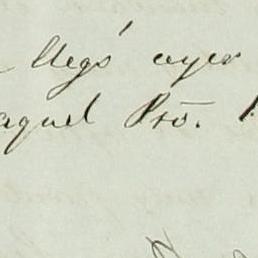 llegó ayer
aquel Pto.